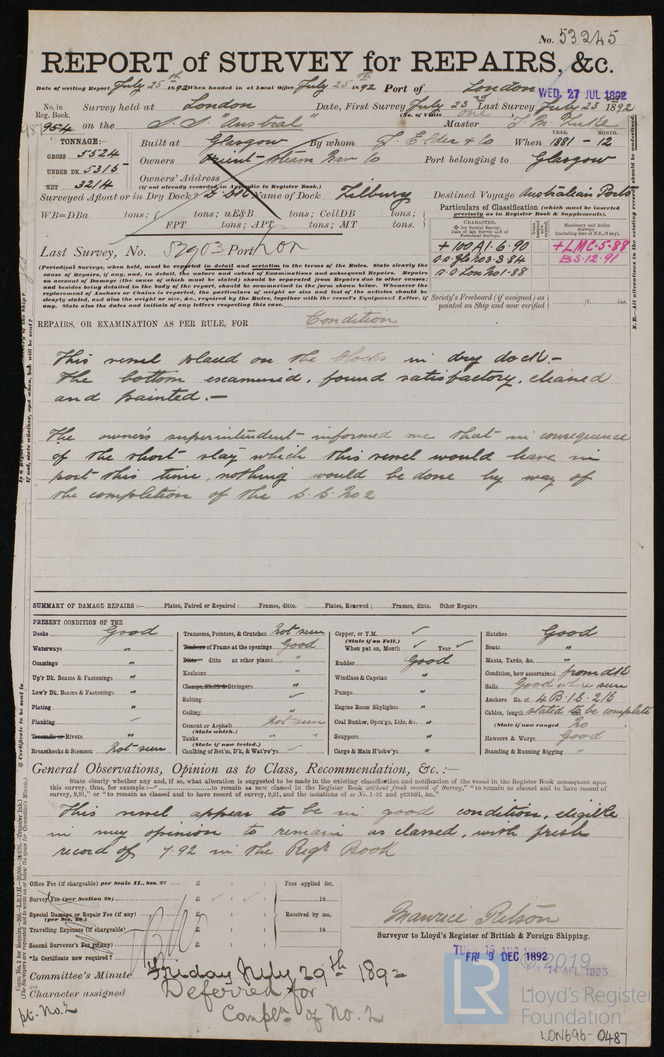 No. 53245
REPORT of SURVEY for REPAIRS, &c.
Date of writing Report July 25th 1892 When handed in at Local Office July 25th 1892 Port of London
WED. 27 JUL 1892
No. in Reg. Book. Survey held at London Date, First Survey July 23rd Last Survey July 23 1892
(No. of Visits one)
954 on the S.S. "Austral" Master
TONNAGE:— Built at Glasgow By whom J. Elder & Co When YEAR. 1881 - MONTH. 12
GROSS 5524
UNDER DK. 5315 Owners Orient Steam Nav Co Port belonging to Glasgow
NET 3214 Owners' Address
(if not already recorded in Appendix to Register Book.)
Surveyed Afloat or in Dry Dock? Name of Dock Tilbury Destined Voyage Australian Ports
WB=DBa tons; uE&B tons; CellDB tons;
FPT tons; APT tons; MT tons.
Particulars of Classification (which must be inserted precisely as in Register Book & Supplements).
CHARACTER.
+100A1.6.90
+LMC.5.88
BS.12.91
s.s Gls No3-3.84
s.s Lon No1-88
Last Survey, No. 52903 Port Lon
(Periodical Surveys, when held, must be reported in detail and seriatim in the terms of the Rules. State clearly the
cause of Repairs, if any, and, in detail, the nature and extent of Examinations and subsequent Repairs. Repairs
on account of Damage (the cause of which must be stated) should be separated from Repairs due to other causes;
and besides being detailed in the body of the report, should be summarised in the form shown below. Whenever the
replacement of Anchors or Chains is reported, the particulars of weight or size and test of the articles should be
clearly stated, and also the weight or size, &c., required by the Rules, together with the vessel's Equipment Letter, if
any. State also the dates and initials of any letters respecting this case.
Society's Freeboard (if assigned) as painted on Ship and now verified ft. ins.
REPAIRS, OR EXAMINATION AS PER RULE, FOR Condition
This vessel placed on the blocks in dry dock.—
The bottom examined, found satisfactory, cleaned
and painted.—
The owner's superintendent informed me that in consequence
of the short stay which this vessel would have in
port this time, nothing would be done by way of
the completion of the S.S. No 2
SUMMARY OF DAMAGE REPAIRS:— Plates, Faired or Repaired; Frames, ditto. Plates, Renewed; Frames, ditto. Other Repairs
PRESENT CONDITION OF THE
Decks Good
Waterways "
Coamings "
Up'r Dk. Beams & Fastenings "
Low'r Dk. Beams & Fastenings "
Plating "
Planking ✓
Treenails or Rivets "
Breasthooks & Stemson Not seen
Transoms, Pointers, & Crutches Not seen
Timbers of Frame at the openings Good
Ditto ditto at other places "
Keelsons "
Clamps, Shelfs & Stringers "
Salting ✓
Ceiling "
Cement or Asphalt Not seen
(State which.)
Tanks " "
(State if now tested.)
Caulking of Bot'm, D'k, & Wat'rw'ys ✓
Copper, or Y.M. ✓
(State if on Felt.)
When put on, Month ✓ Year ✓
Rudder Good
Windlass & Capstan "
Pumps "
Engine Room Skylights "
Coal Bunker, Open'gs, Lids, &c. "
Scuppers "
Cargo & Main H'tchw'ys "
Hatches Good
Boats "
Masts, Yards, &c. "
Condition, how ascertained from dk
Sails Good where seen
Anchors No. of 4B.1S.2K
Cables, length stated to be complete
(State if now ranged) No
Hawsers & Warps Good
Standing & Running Rigging "
General Observations, Opinion as to Class, Recommendation, &c.:—
State clearly whether any and, if so, what alteration is suggested to be made in the existing classification and notification of the vessel in the Register Book consequent upon
this survey, thus, for example:—" to remain as now classed in the Register Book without fresh record of Survey," "to remain as classed and to have record of
survey, 9,91," or "to remain as classed and to have record of survey, 9,91, and the notations of
This vessel appear to be in good condition, eligible
in my opinion to remain as classed, with fresh
record of 7.92 in the Regr Book
Office Fee (if chargeable) per Scale II., Sec. 27 £
Survey Fee (per Section 28) £
Special Damage or Repair Fee (if any) £
(per Sec. 28.)
Travelling Expenses (if chargeable) £
Second Surveyor's Fee (if any) £
*Is Certificate now required?
Fees applied for,
18
Received by me,
18
Maurice
Surveyor to Lloyd's Register of British & Foreign Shipping.
FRI 9 DEC 1892
Committee's Minute Friday July 29th 1892
Character assigned Deferred for
Compln of No. 2
pt. No. 2
© 2019
LR
Lloyd's Register
Foundation
LON696-0487